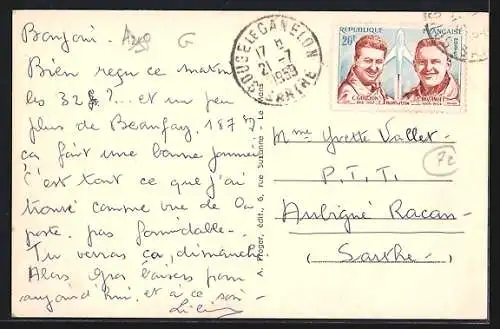 Bonjour. A220 G
Bien reçu ce matin
les 32 ?... et un peu
plus de Beaufay, 187
ça fait une bonne journée
C'est tout ce que j'ai
trouvé comme vue de la
poste, pas formidable -
Tu verras ça, dimanche.
Alors Gros baisers pour
aujourd'hui, et à ce soir -
A. Proger, édit., 6, rue Suzanne - Le Mans
SOUGE LE GANELON
17 H
21 - 7
1959
SARTHE
REPUBLIQUE FRANÇAISE
20F
POSTES
C. GOUJON
Mme Yvette Vallet -
72
P.T.T.
Aubigné Racan -
(Sarthe)